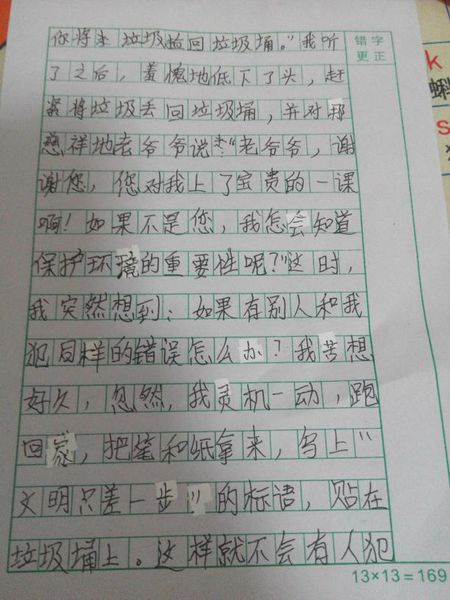 你将本垃圾捡回垃圾埇。"我听
了之后，羞愧地低下了头，赶
紧将垃圾丢回垃圾埇，并对那
慈祥地老爷爷说："老爷爷，谢
谢您，您对我上了宝贵的一课
啊！如果不是您，我怎会知道
保护环境的重要性呢？"这时，
我突然想到：如果有别人和我
犯同样的错误怎么办？我苦想
好久，忽然，我灵机一动，跑
回家，把笔和纸拿来，写上"
文明只差一步"的标语，贴在
垃圾埇上。这样就不会有人犯
错字
更正
13×13=169
k
s